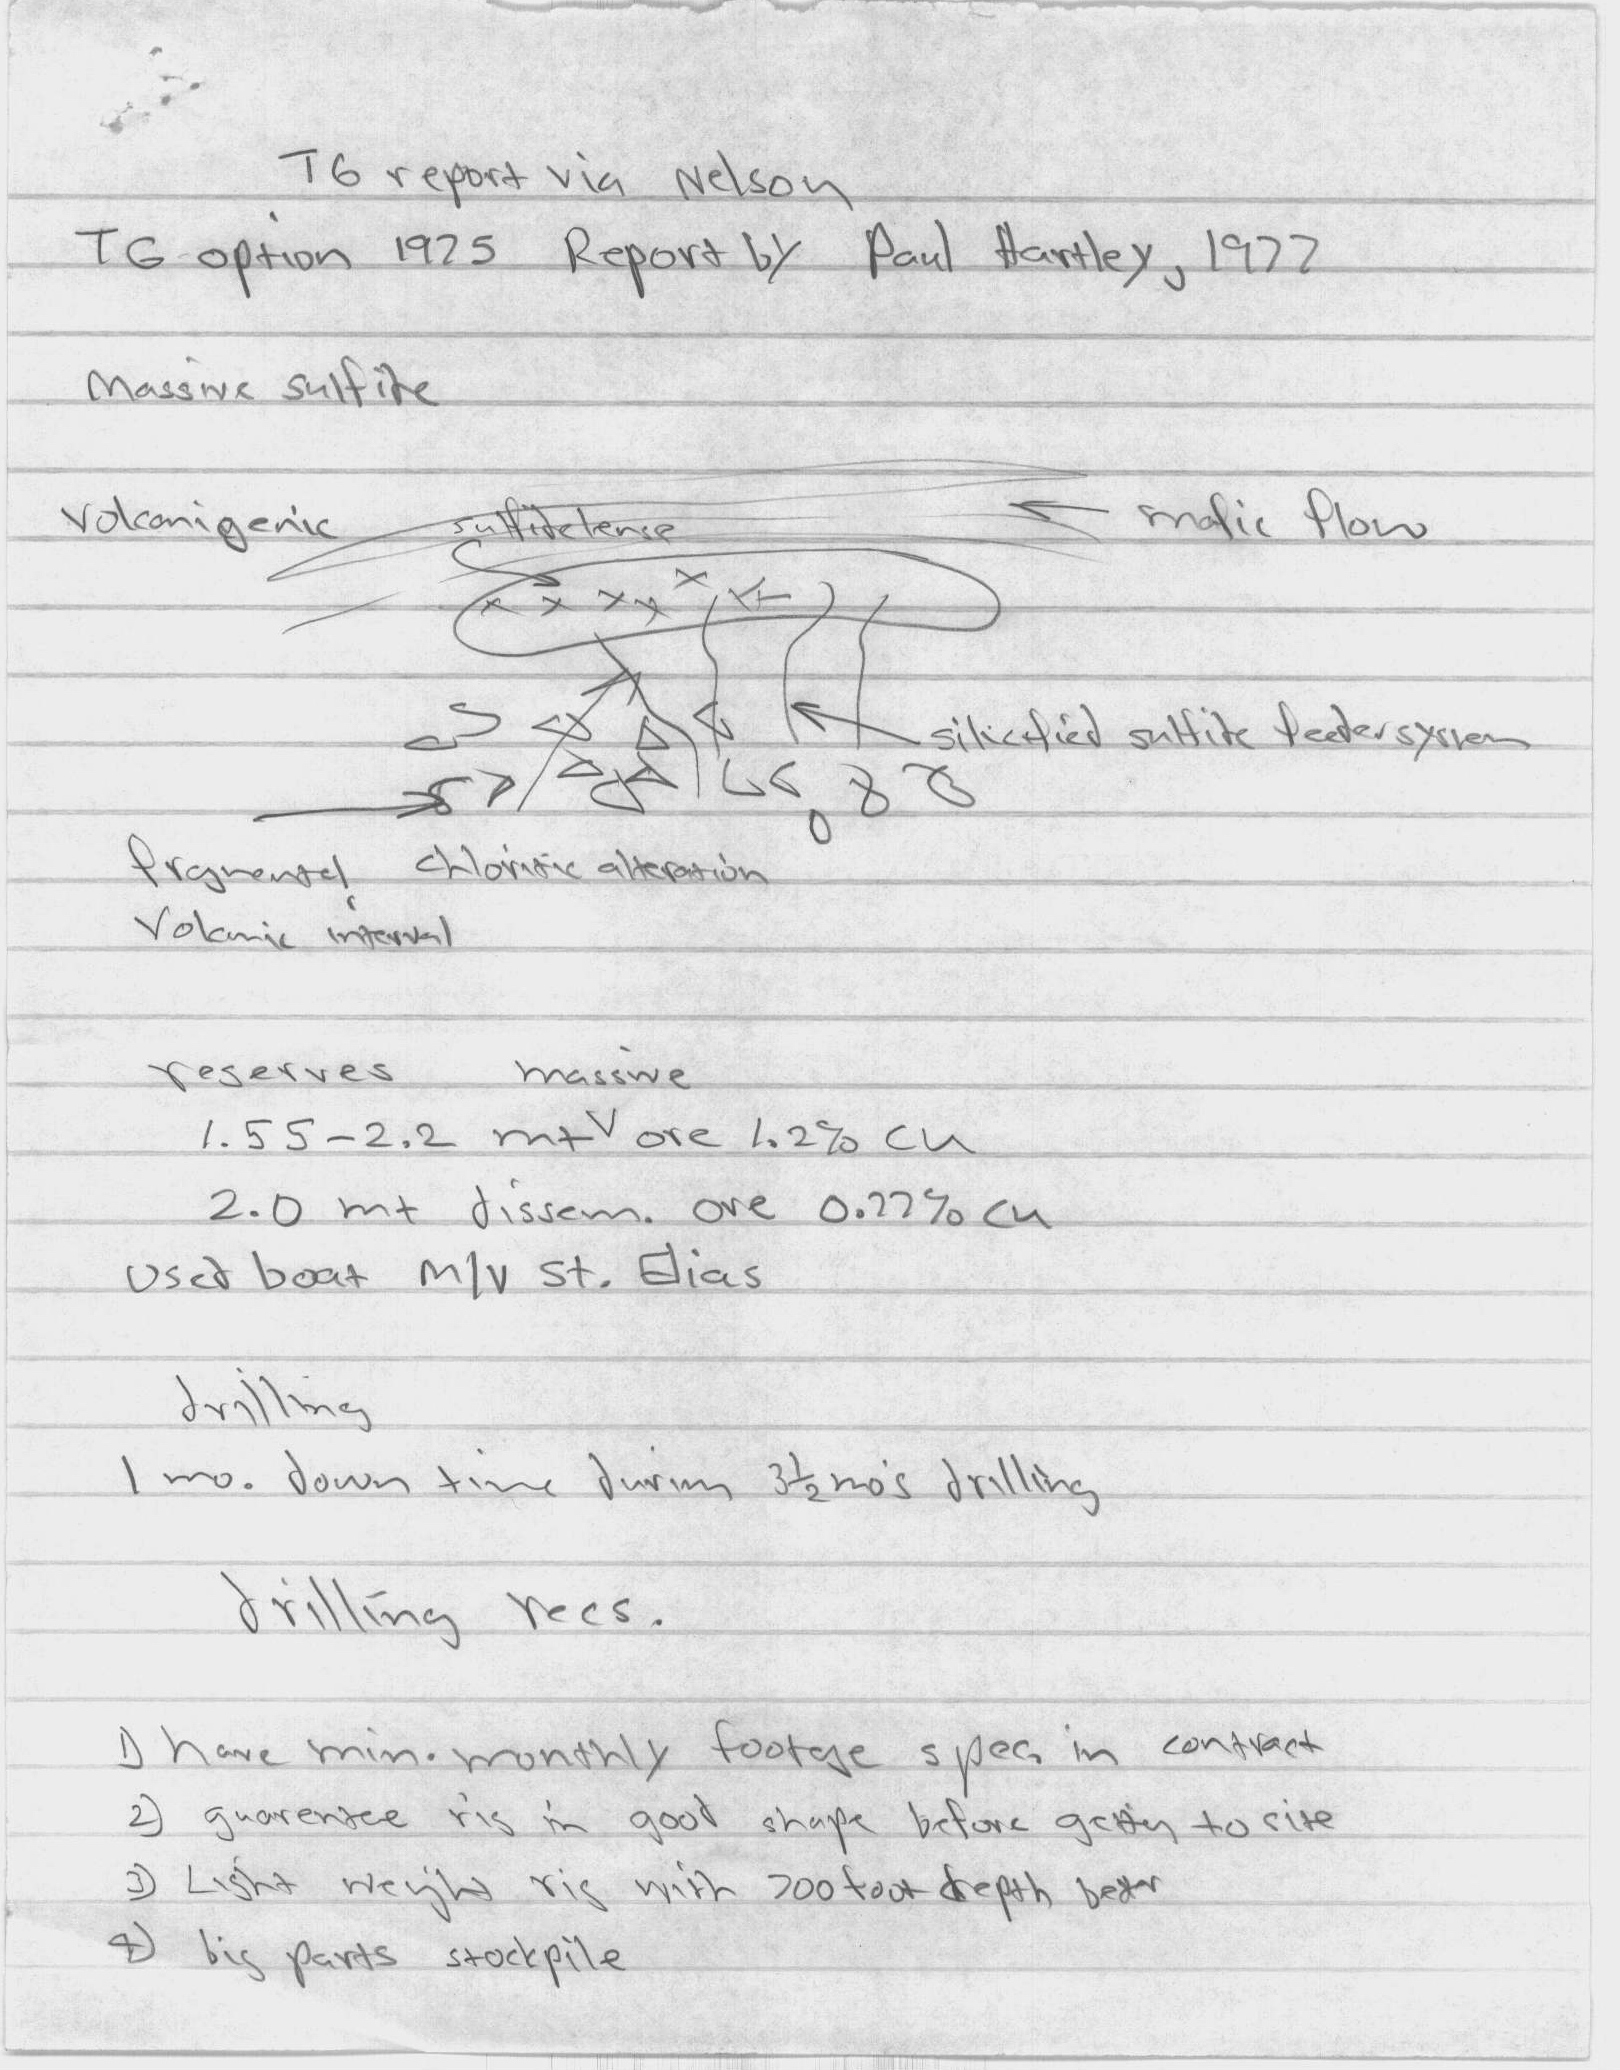 TG report via Nelson
TG option 1975 Report by Paul Hartley, 1977
Massive sulfide
Volcanigenic sulfide lense mafic flow
silicified sulfide feeder system
fragmental chloritic alteration
Volcanic interval
reserves massive
1.55-2.2 mt V ore 1.2% Cu
2.0 mt dissem. ore 0.77% Cu
Used boat M/V St. Elias
drilling
1 mo. down time during 3½ mo's drilling
drilling recs.
1) have min. monthly footage spec. in contract
2) guarentee rig in good shape before gettin to site
3) Light weight rig with 700 foot depth better
4) big parts stockpile